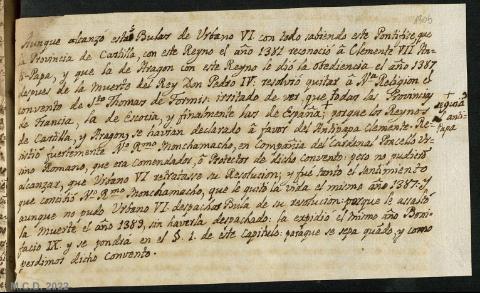 Aunque alcanzó estas Bulas de Urbano VI con todo sabiendo este Pontifice, que
la Provincia de Castilla, con este Reyno el año 1381 reconoció à Clemente VII An-
ti-Papa, y que la de Aragon con este Reyno le dió la obediencia el año 1387
despues de la Muerte del Rey Don Pedro IV. resolvió quitar à Nra Religion el
convento de Sto Thomas de Formis: irritado de ver, que todas las Provincias
de Francia, la de Escocia, y finalmente las de España + porque los Reynos
de Castilla, y Aragon se havian declarado à favor del Antipapa Clemente. Re-
sistió fuertemente No Rmo Menchamacho, en Compañia del Cardenal
Romano, que era comendador, ò Protector de dicho convento: pero no pudiero
alcanzar, que Urbano VI retratasse su Resolucion; y fue tanto el sentimiento
que concibió No Rmo Menchamacho, que le quitó la vida el mismo año 1387: y
aunque no pudo Urbano VI despachar Bula de su resolucion porque le assaltó
la Muerte el año 1389, sin haverla despachado: la expidió el mismo año Boni-
facio IX. y se pondrá en el §. 1. de este Capitulo: paraque se sepa quado, y como
perdimos dicho Convento.
+
seguian
al anti-
papa
M.C.D. 2022